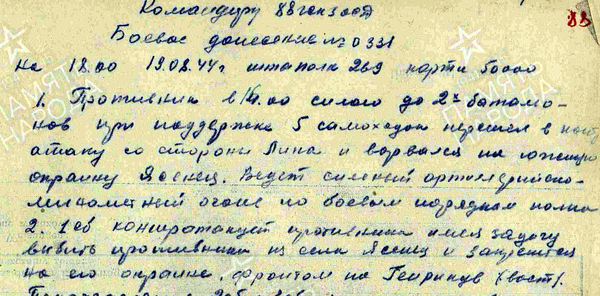 88
Командиру 88 гв. сд
Боевое донесение № 0331
на 18.00 19.08.44г штаполк 269 карта 50000
1. Противник в 14.00 силою до 2х батальо-
нов при поддержке 5 самоходок перешел в контр
атаку со стороны Липа и ворвался на южную
окраину Ясенец. Ведет сильный артиллерийско-
минометный огонь по боевым порядкам полка
2. 1 сб контратакует противника имея задачу
выбить противника из села Ясенец и закрепиться
на его окраине, фронтом на Генрикув (вост).
ПАМЯТЬ НАРОДА